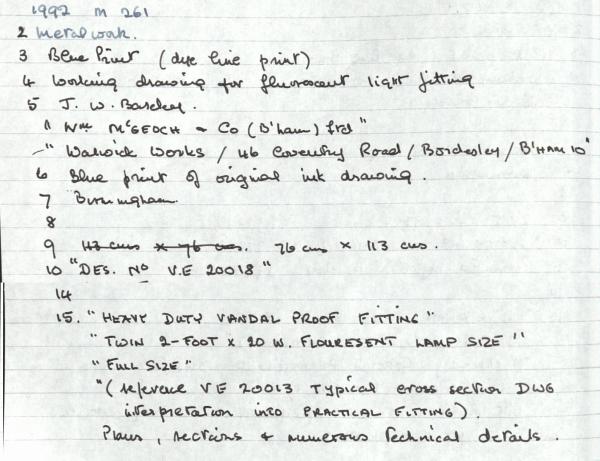 1992 M 261
2 Metalwork.
3 Blue Print (dye line print)
4 Working drawing for fluorescent light fitting
5 J. W. Barclay.
" Wm McGEOCH & Co (B'ham) Ltd "
" Warwick Works / 46 Coventry Road / Bordesley / B'HAM 10"
6 Blue print of original ink drawing.
7 Birmingham.
8
9 113 cms x 76 cms. 76 cms x 113 cms.
10 "DES. No V.E 20018"
14
15. "HEAVY DUTY VANDAL PROOF FITTING"
"TWIN 2-FOOT x 20 W. FLOURESENT LAMP SIZE"
"FULL SIZE"
"(reference VE 20013 Typical cross section DWG
interpretation into PRACTICAL FITTING).
Plans, sections & numerous technical details.